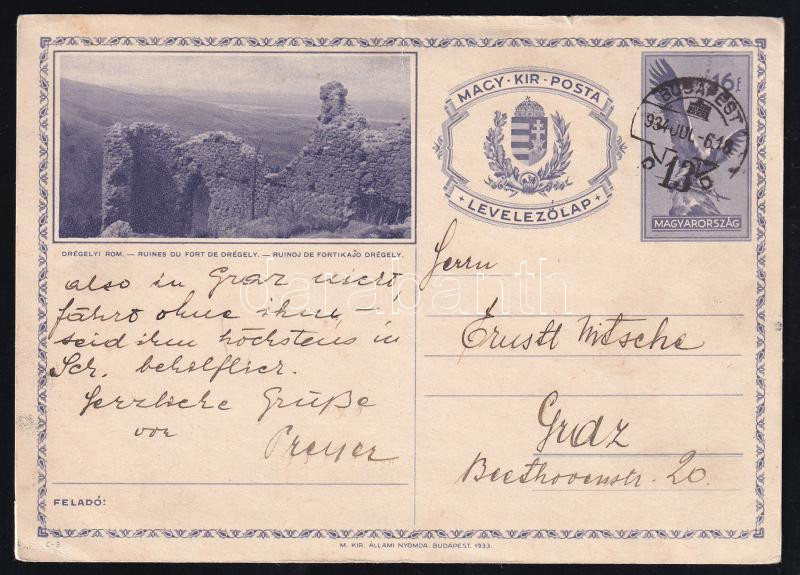 MAGY · KIR · POSTA
+ LEVELEZŐLAP +
16 f
BUDAPEST
934 JUL.-6.18
MAGYARORSZÁG
DRÉGELYI ROM. — RUINES DU FORT DE DRÉGELY. — RUINOJ DE FORTIKAĴO DRÉGELY.
also in Graz
fährt ohne ihn, –
seid ihm höchstens in
Scr. behilflich.
Herzliche Grüße
von
FELADÓ:
Herrn
Ernstt Nitsche
Graz
Beethovenstr. 20.
C-3
M. KIR. ÁLLAMI NYOMDA. BUDAPEST. 1933.
darabanth